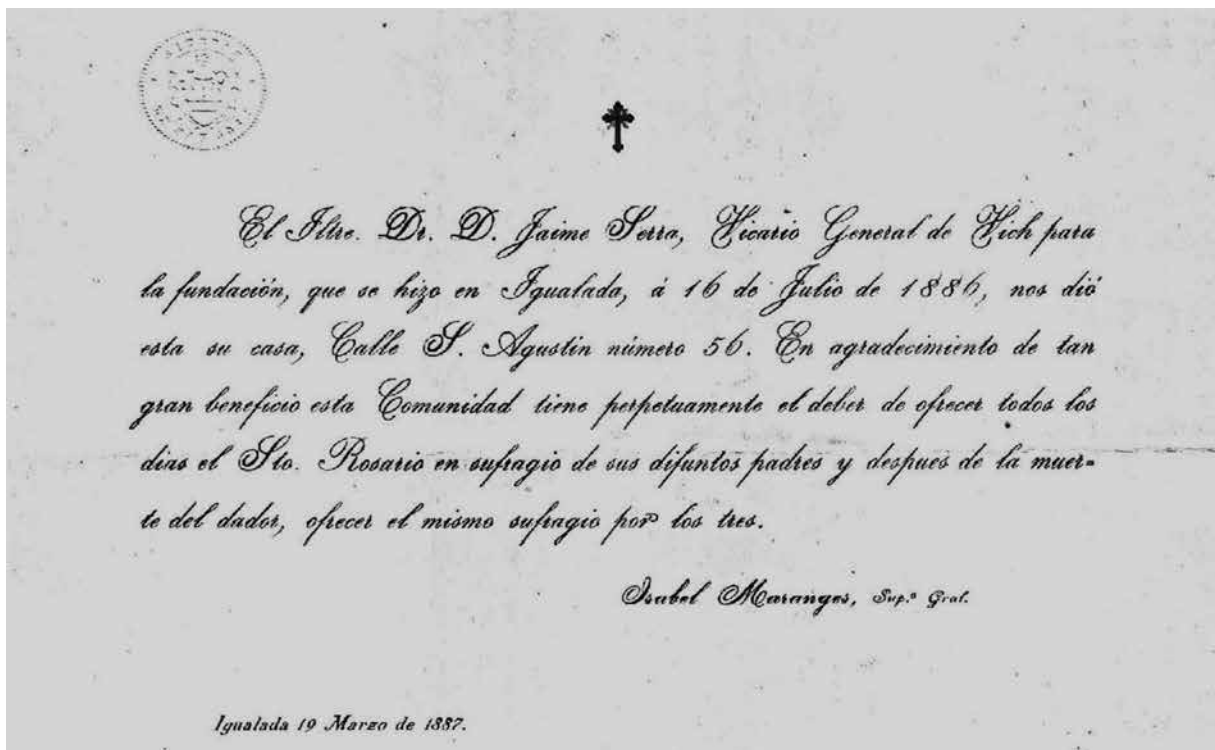 El Iltre. Dr. D. Jaime Serra, Vicario General de Vich para
la fundación, que se hizo en Igualada, á 16 de Julio de 1886, nos dió
esta su casa, Calle S. Agustin número 56. En agradecimiento de tan
gran beneficio esta Comunidad tiene perpetuamente el deber de ofrecer todos los
dias el Sto. Rosario en sufragio de sus difuntos padres y despues de la muer-
te del dador, ofrecer el mismo sufragio por los tres.
Isabel Maranges, Sup.ª Gral.
Igualada 19 Marzo de 1887.